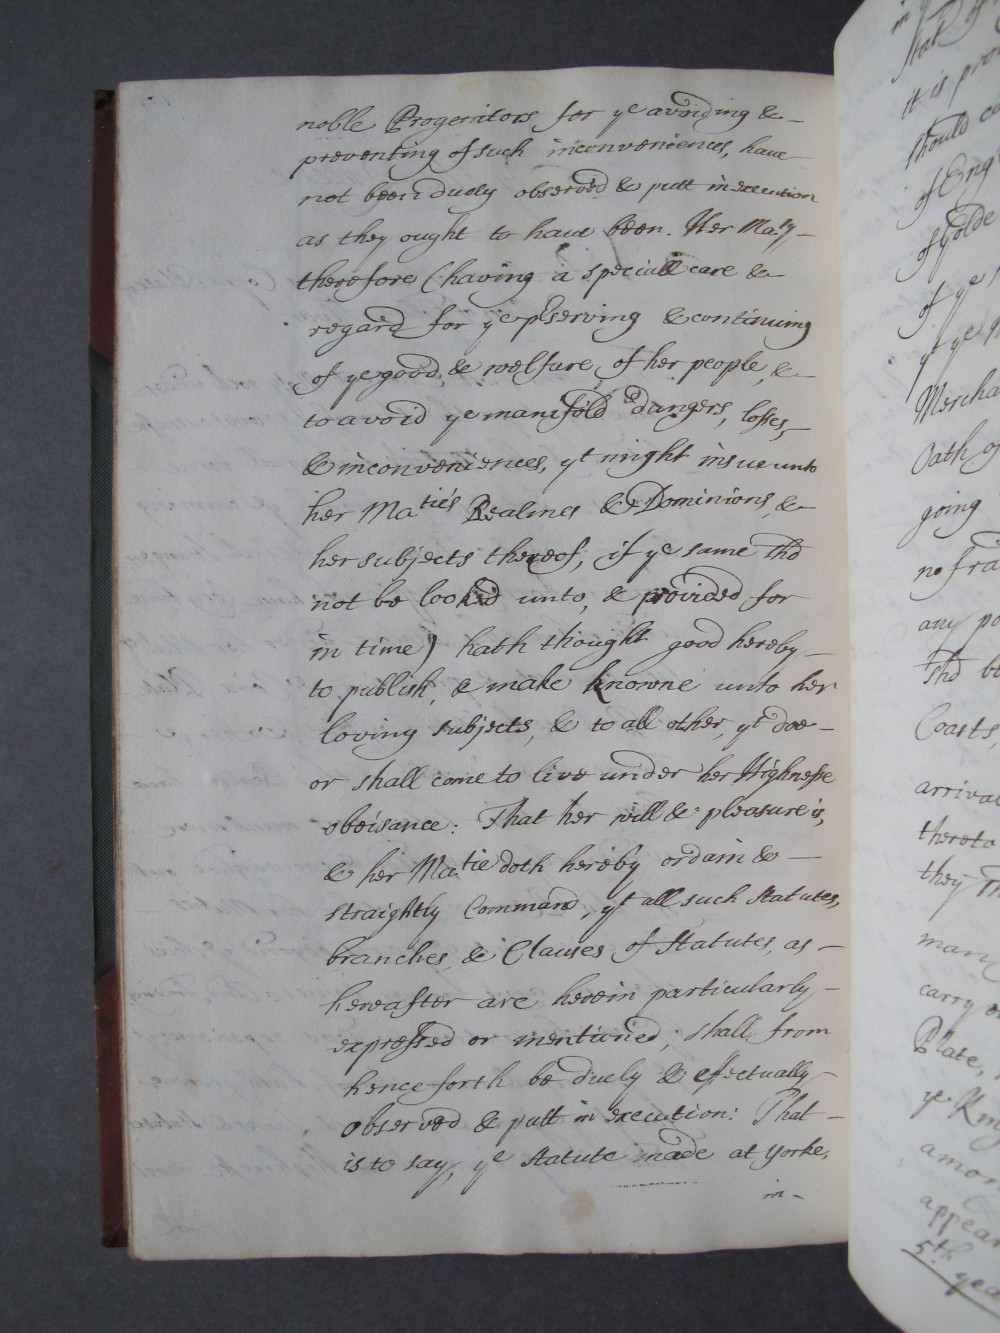 noble Progenitors for ye avoiding &
preventing of such inconveniences, have
not been duely observed & putt in execution
as they ought to have been. Her Maty
therefore (having a speciall care &
regard for ye pserving & continuing
of ye good & welfare of her people, &
to avoid ye manifold dangers, losses,
& inconveniences, yt might insue unto
her Maties Realmes & Dominions, &
her subjects thereof, if ye same shd
not be looked unto, & provided for
in time) hath thought good hereby
to publish, & make knowne unto her
loving subjects, & to all other, yt doe
or shall come to live under her Highnesse
obeisance: That her will & pleasure is,
& her Matie doth hereby ordain &
straightly Command, yt all such Statutes,
branches, & Clauses of Statutes, as
hereafter are herein particularly
expressed or mentioned, shall from
henceforth be duely & effectually
observed & putt in execution: That
is to say, ye Statute made at Yorke,
in
it is
should
of Eng
of Golde
of ye
yt ye
Mercha
Oath of
going
no fra
any po
shd be
Coasts,
arrival
thereto
they
man
carry
Plate,
ye King
amon
appear
5th yea